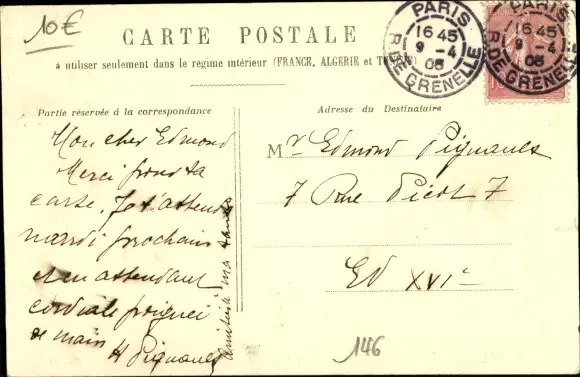 10€
CARTE POSTALE
à utiliser seulement dans le régime intérieur (FRANCE, ALGERIE et TUNISIE)
PARIS
16 45
9 - 4
05
R. DE GRENELLE
PARIS
16 45
9 - 4
05
R. DE GRENELLE
10
Partie réservée à la correspondance
Adresse du Destinataire
Mon cher Edmond
Merci pour ta
carte. Je t'attends
mardi prochain
et en attendant
cordiale poignée
de main
H Pignanes
amitié à ma tante
Mr Edmond Pignanes
7 Rue Picot 7
EV XVIe
146